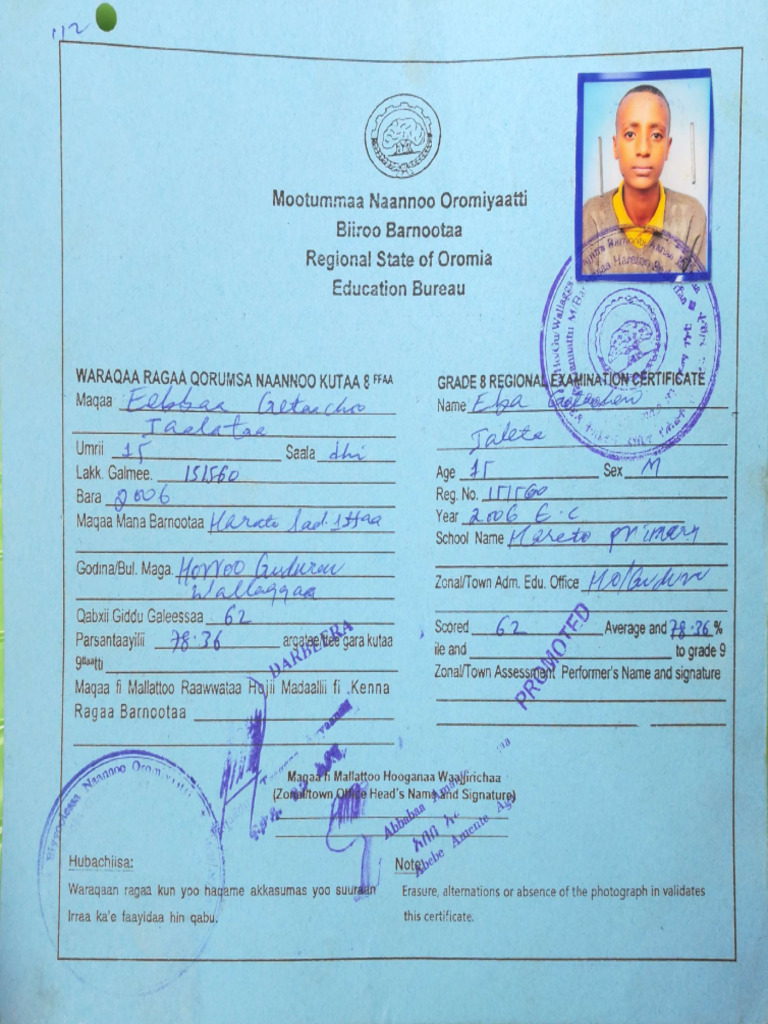 112
Mootummaa Naannoo Oromiyaatti
Biiroo Barnootaa
Regional State of Oromia
Education Bureau
WARAQAA RAGAA QORUMSA NAANNOO KUTAA 8 FFAA
Maqaa Eebbaa Getaachoo
Taalataa
Umrii 15 Saala dhi
Lakk. Galmee. 151560
Bara 2006
Maqaa Mana Barnootaa Haratu Sad. 1ffaa
Godina/Bul. Maga. Horroo Guduruu
Wallaggaa
Qabxii Giddu Galeessaa 62
Parsantaayilii 78.36 argatee/ttee gara kutaa
9ffaatti
Maqaa fi Mallattoo Raawwataa Hojii Madaallii fi Kenna
Ragaa Barnootaa
DARBEERA
GRADE 8 REGIONAL EXAMINATION CERTIFICATE
Name Eba
Taleta
Age 15 Sex M
Reg. No. 151560
Year 2006 E.C
School Name Hareto primary
Zonal/Town Adm. Edu. Office HO/Guduru
Scored 62 Average and 78.36 %
ile and to grade 9
Zonal/Town Assessment Performer's Name and signature
PROMOTED
Maqaa fi Mallattoo Hooganaa Waajjirichaa
(Zonal/town Office Head's Name and Signature)
Abbabaa
Abebe Amente
Hubachiisa:
Waraqaan ragaa kun yoo haqame akkasumas yoo suuraan
Irraa ka'e faayidaa hin qabu.
Note:
Erasure, alternations or absence of the photograph in validates
this certificate.